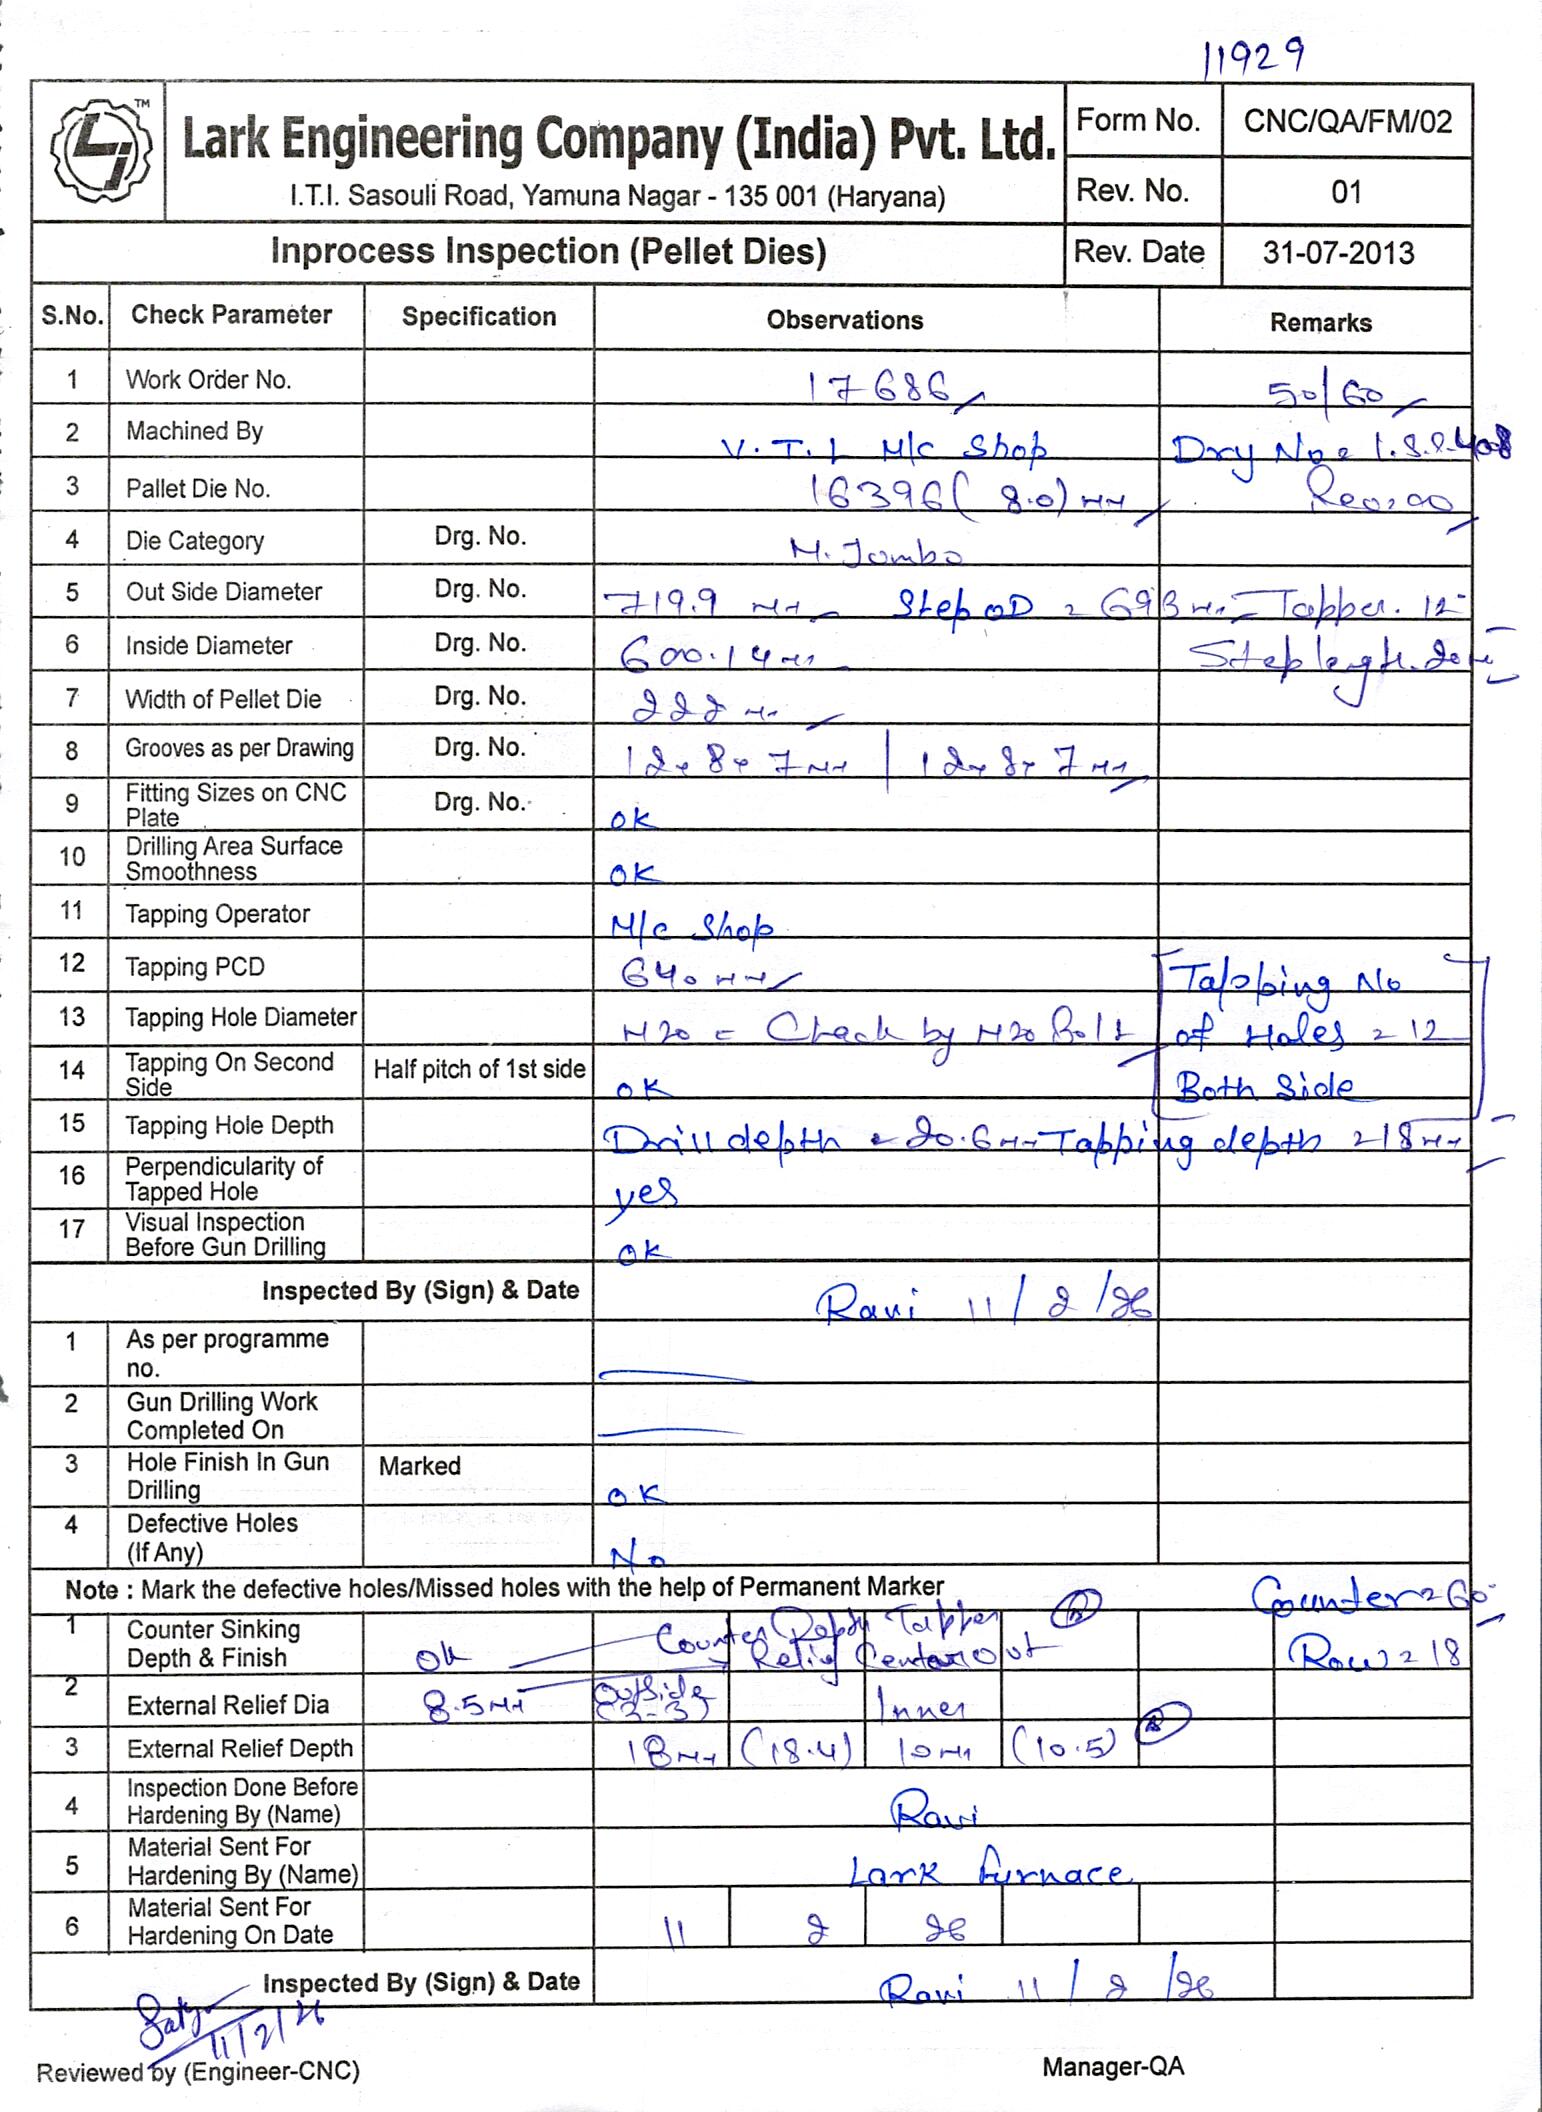 11929
TM
Lark Engineering Company (India) Pvt. Ltd.
I.T.I. Sasouli Road, Yamuna Nagar - 135 001 (Haryana)
Form No. CNC/QA/FM/02
Rev. No. 01
Inprocess Inspection (Pellet Dies) Rev. Date 31-07-2013
S.No. Check Parameter Specification Observations Remarks
1 Work Order No. 17686 50/60
2 Machined By V.T.L M/c Shop
3 Pallet Die No. 16396 (8.0) mm
4 Die Category Drg. No. M. Jombo
5 Out Side Diameter Drg. No. 719.9 mm Step OD = 693 mm Tapper. 12
6 Inside Diameter Drg. No. 600.14 mm Step length. 20 mm
7 Width of Pellet Die Drg. No. 222 mm
8 Grooves as per Drawing Drg. No. 12x8x7mm | 12x8x7mm
9 Fitting Sizes on CNC Plate Drg. No. ok
10 Drilling Area Surface Smoothness ok
11 Tapping Operator M/c Shop
12 Tapping PCD 640 mm Tapping No
13 Tapping Hole Diameter M20 = Check by M20 Bolt of Holes = 12
14 Tapping On Second Side Half pitch of 1st side ok Both Side
15 Tapping Hole Depth Drill depth = 20.6mm Tapping depth = 18mm
16 Perpendicularity of Tapped Hole yes
17 Visual Inspection Before Gun Drilling ok
Inspected By (Sign) & Date Ravi 11/2/26
1 As per programme no.
2 Gun Drilling Work Completed On
3 Hole Finish In Gun Drilling Marked ok
4 Defective Holes (If Any) No
Note : Mark the defective holes/Missed holes with the help of Permanent Marker Counter = 60
1 Counter Sinking Depth & Finish ok Counter Depth Tapper Relief Center Out Row = 18
2 External Relief Dia 8.5mm Outside (3-3) Inner
3 External Relief Depth 18mm (18.4) 10mm (10.5)
4 Inspection Done Before Hardening By (Name) Ravi
5 Material Sent For Hardening By (Name) Lark Furnace
6 Material Sent For Hardening On Date 11 2 26
Inspected By (Sign) & Date Ravi 11/2/26
11/2/26
Reviewed by (Engineer-CNC) Manager-QA